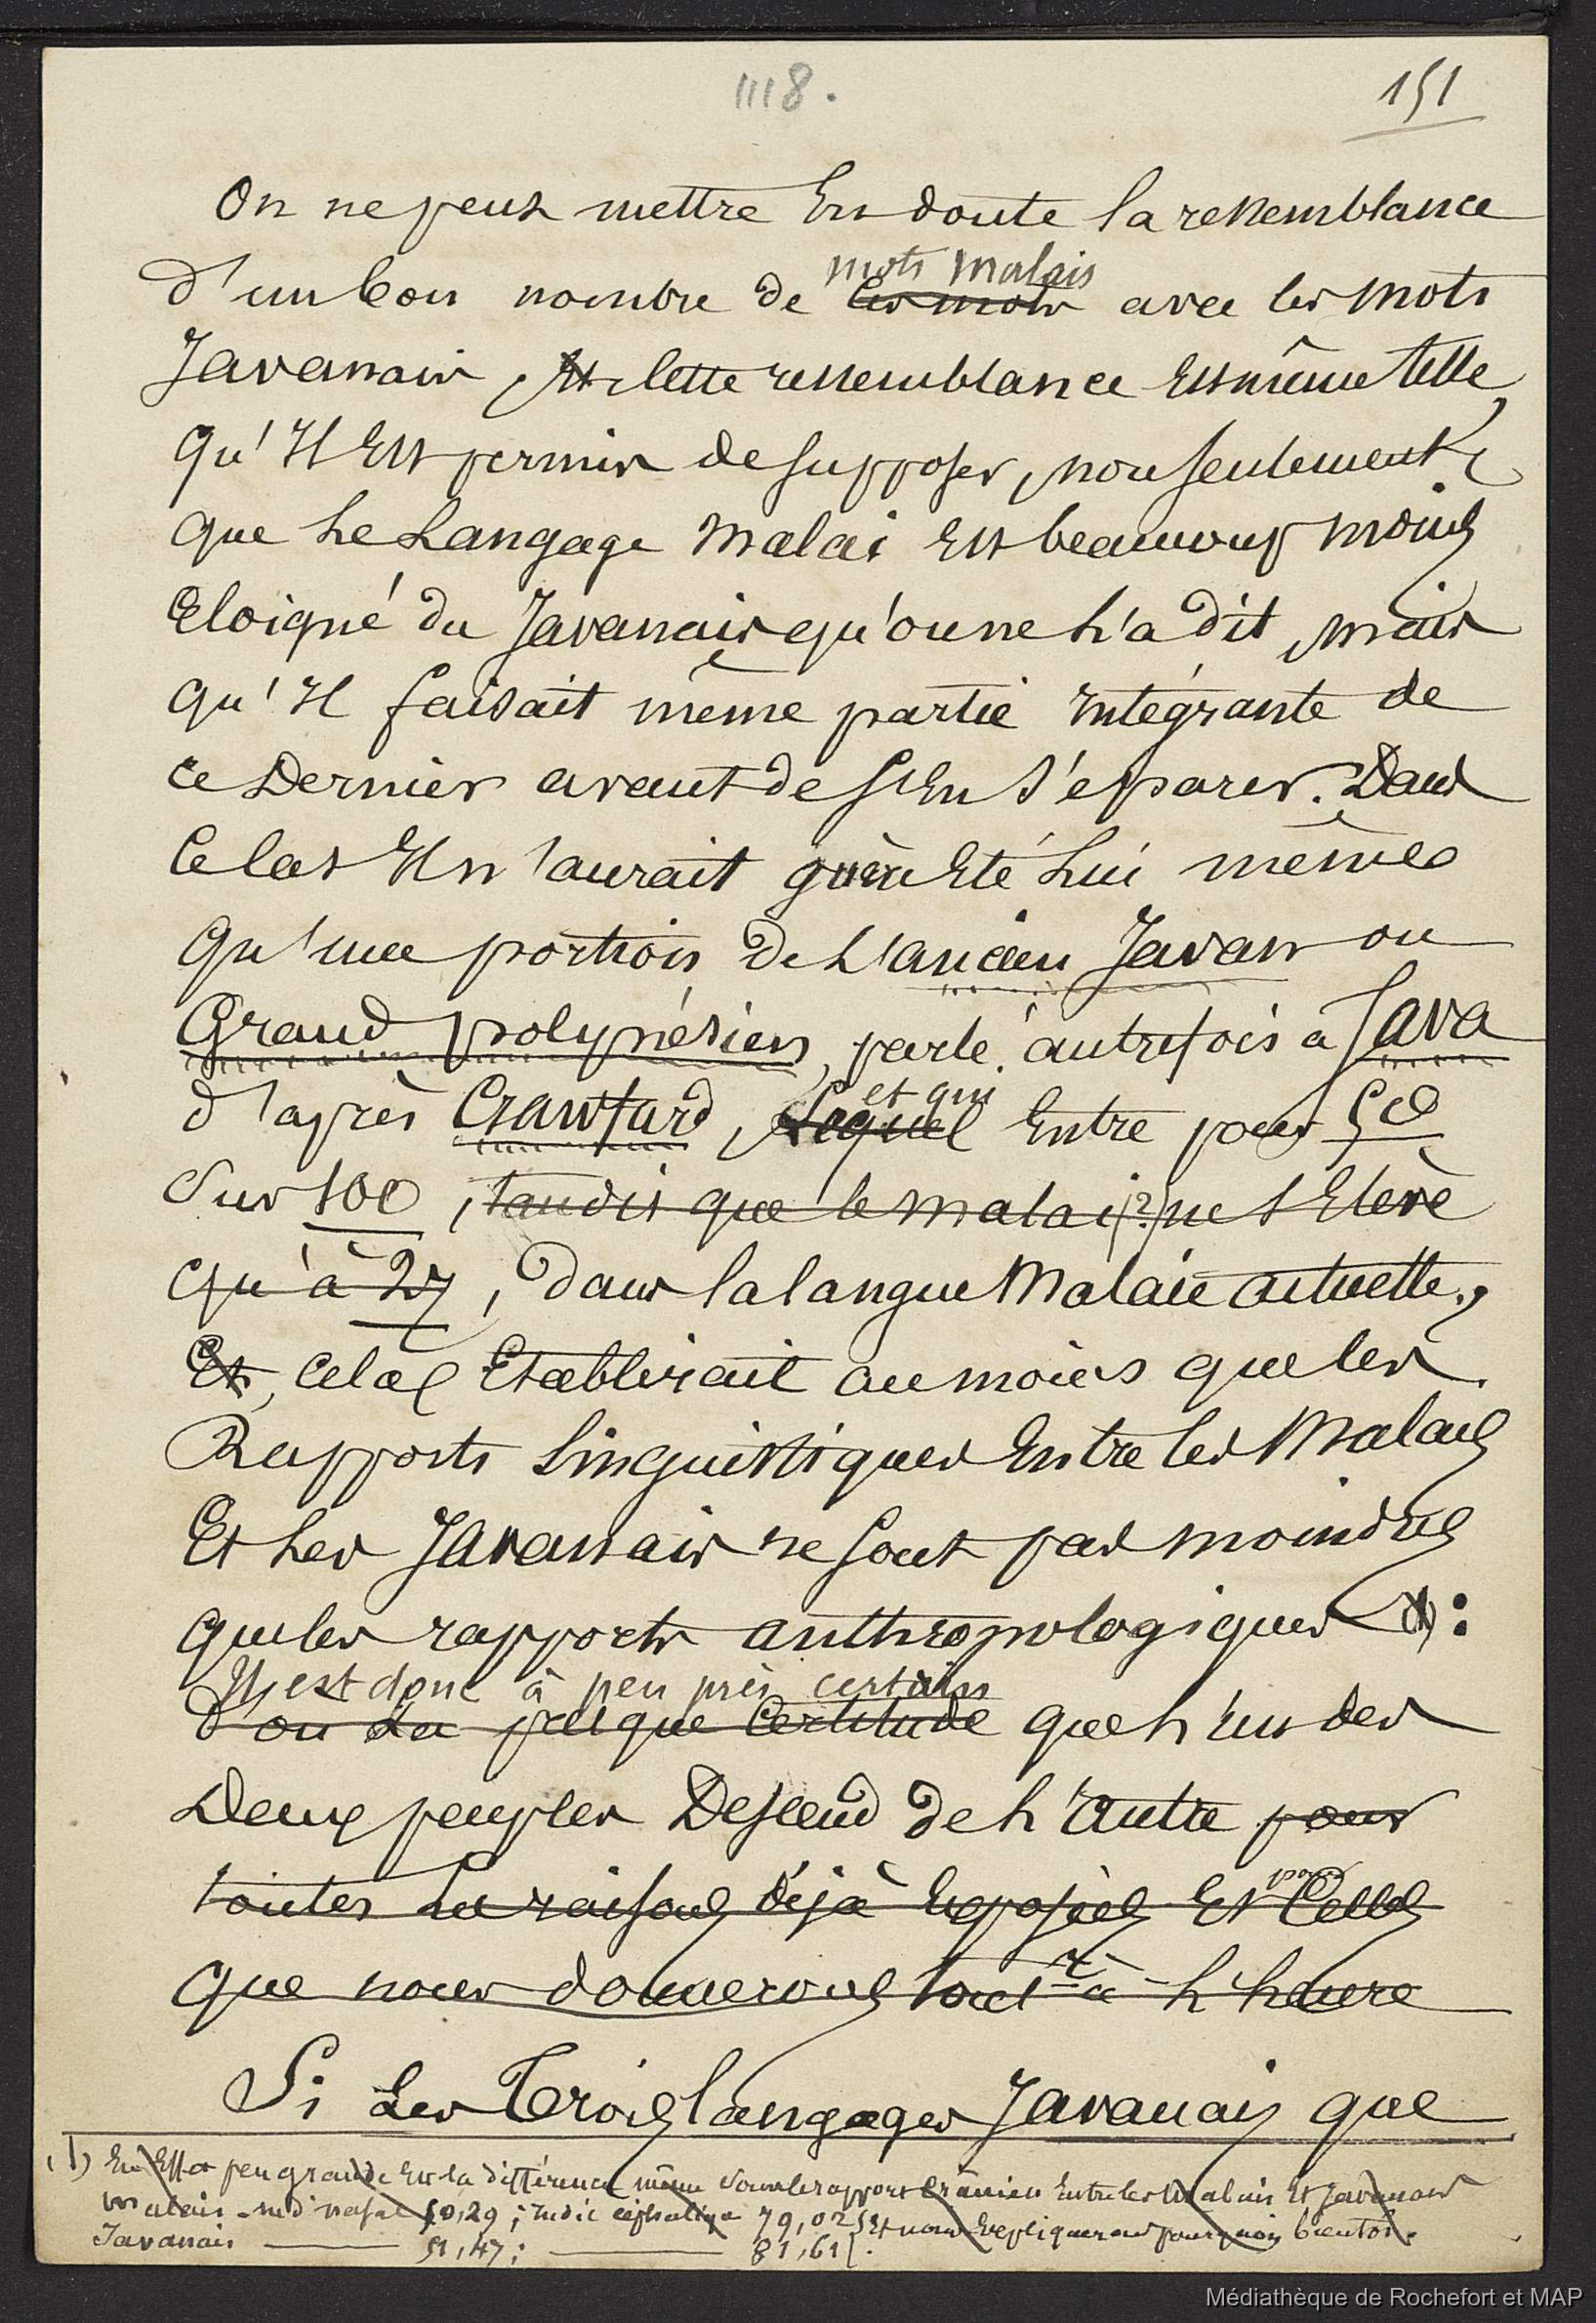 1118.
151
On ne peut mettre En doute la ressemblance
mots Malais
d'un bon nombre de ces mots avec les mots
Javanais, Et cette ressemblance Est même telle,
qu'Il Est permis de supposer, non seulement
que Le Langage Malai Est beaucoup moins
Eloigné du Javanais qu'on ne L'a dit, mais
qu'Il faisait même partie Intégrante de
ce Dernier avant de s'En séparer. Dans
ce cas Il n'aurait guère Eté Lui même
qu'une portion de L'ancien Javan ou
Grand polynésien, parlé autrefois à Java
et qui
d'après Crawfurd, Lequel Entre pour 50
Sur 100, tandis que le malai (?) ne s'Elève
qu'à 27, dans la langue Malaie actuelle,
Et, Cela Etablirait au moins que les
Rapports Linguistiques Entre les Malais
Et Les Javanais ne sont pas moindres
que les rapports anthropologiques (1) :
Il est donc à peu près certain
D'où La presque Certitude que L'un des
Deux peuples Descend de L'autre pour
toutes Les raisons déjà Exposées Et pour Celles
que nous donnerons tout à L'heure
Si Les Trois langages Javanais que
(1) En Effet peu grande Est la différence même sous le rapport Crânien Entre les Malais Et Javanais
Malais - Ind. nasal 50,29 ; Indic céphalique 79,02 Et nous Expliquerons pourquoi bientôt.
Javanais 51,47 ; 81,61
Médiathèque de Rochefort et MAP